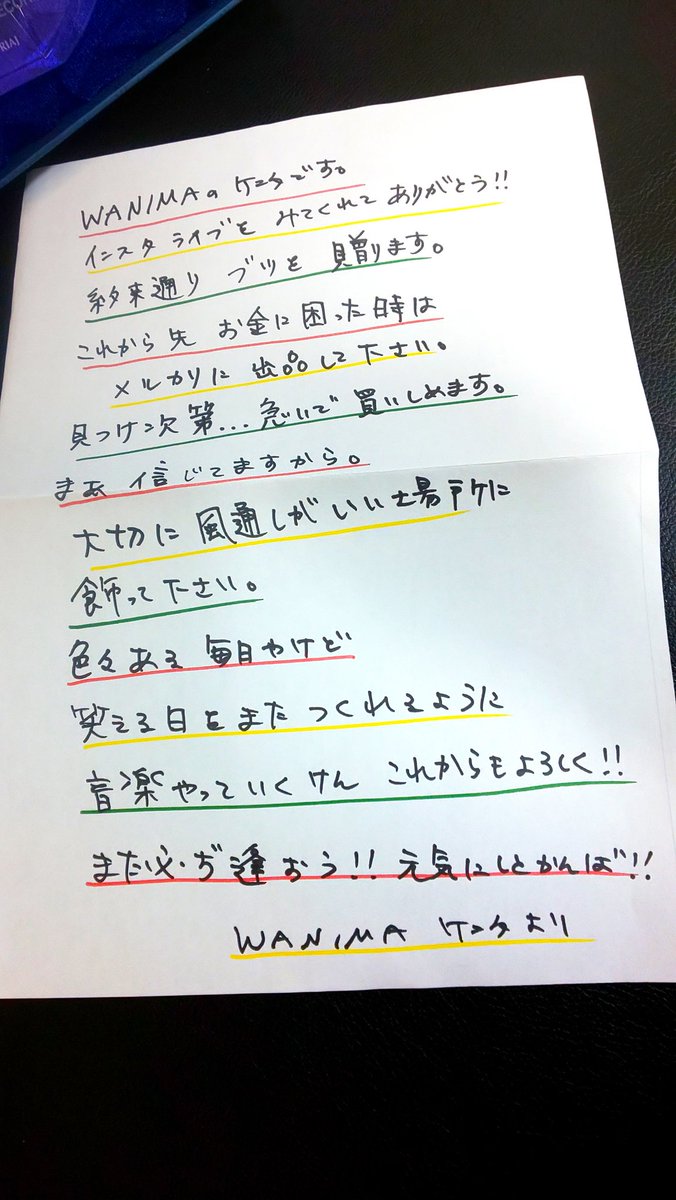 ECOR
RIA)
WANIMAの ケンタです。
インスタライブを みてくれて ありがとう!!
約束通り ブツを 贈ります。
これから先 お金に困った時は
メルカリに 出品して下さい。
見つけ次第... 急いで 買いしめます。
まあ 信じてますから。
大切に 風通しがいい場所に
飾って下さい。
色々ある 毎日やけど
笑える日をまた つくれるように
音楽やっていくけん これからもよろしく!!
また必ず逢おう!! 元気にしとかんば!!
WANIMA ケンタより